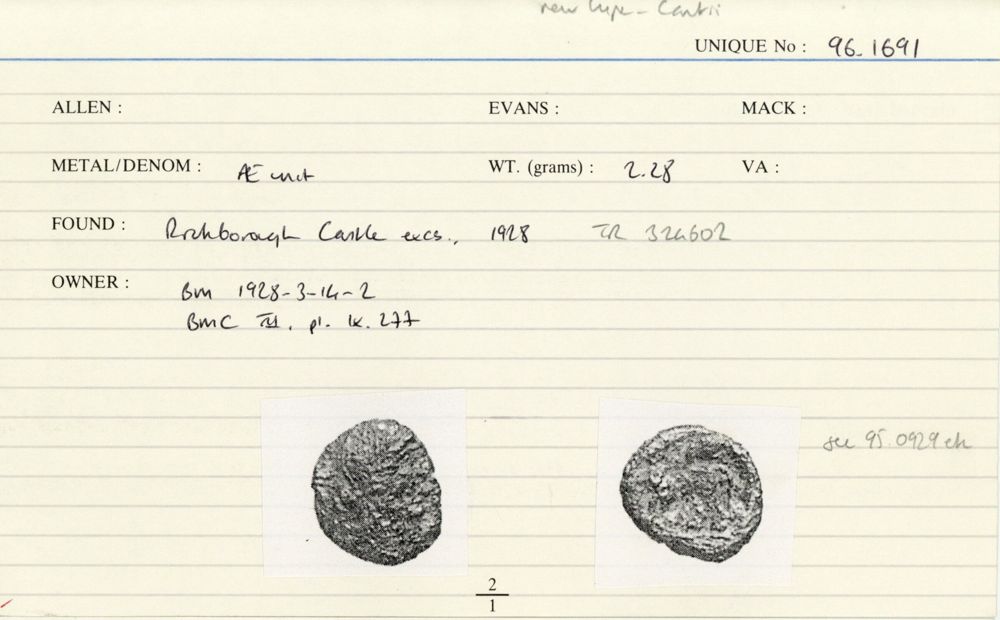 new type - Cantii
UNIQUE No : 96.1691
ALLEN : EVANS : MACK :
METAL/DENOM : Æ unit WT. (grams) : 2.28 VA :
FOUND : Richborough Castle excs., 1928 TR 324602
OWNER : BM 1928-3-14-2
BMC III, pl. ix. 277
see 95.0929 etc
2
1